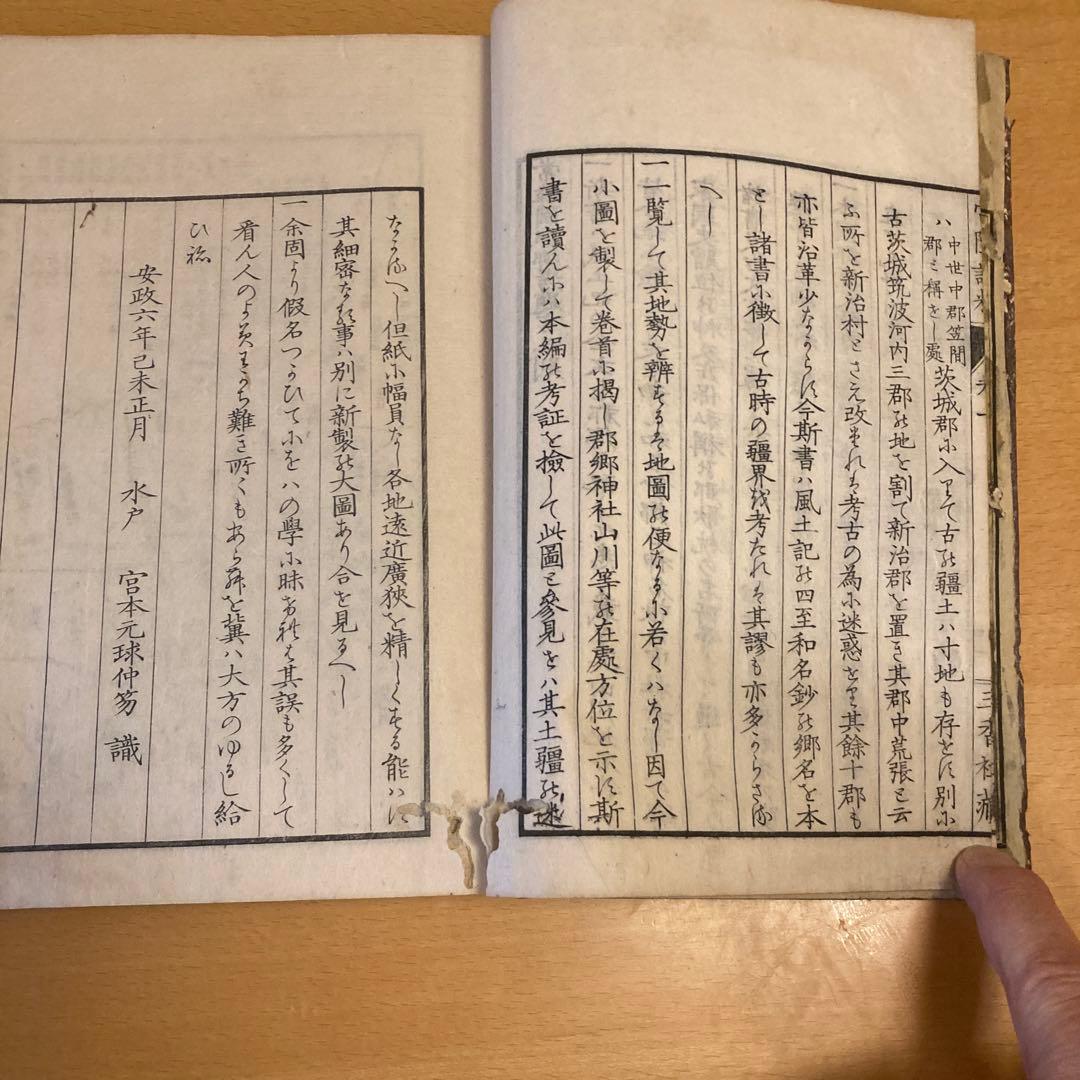 ハ中世中郡笠間郡と稱をし處茨城郡に入りて古の疆土ハ寸地も存をす別に
古茨城筑波河内三郡の地を割て新治郡を置き其郡中荒張と云
ふ所を新治村とさえ改されは考古の為に迷惑をり其餘十郡も
亦皆沿革少なからす今斯書ハ風土記の四至和名鈔の郷名を本
とし諸書に徴して古時の疆界を考たれは其謬も亦多からさる
へし
一一覧して其地勢を辨するは地圖の便なるに若くハなし因て今
小圖を製して卷首に掲け郡郷神社山川等の在處方位を示す斯
書を讀んにハ本編の考証を撿して此圖と參見をハ其土疆の迷
なかるへし但紙に幅員なし各地遠近廣狹を精しくする能ハす
其細密なる事ハ別に新製の大圖あり合を見るへし
一余固より假名つかひてにをハの學に昧けれは其誤も多くして
看ん人のよみわかち難き所くもあらんを冀ハ大方のゆるし給
ひね
安政六年己未正月 水戸 宮本元球仲笏 識
三香社藏